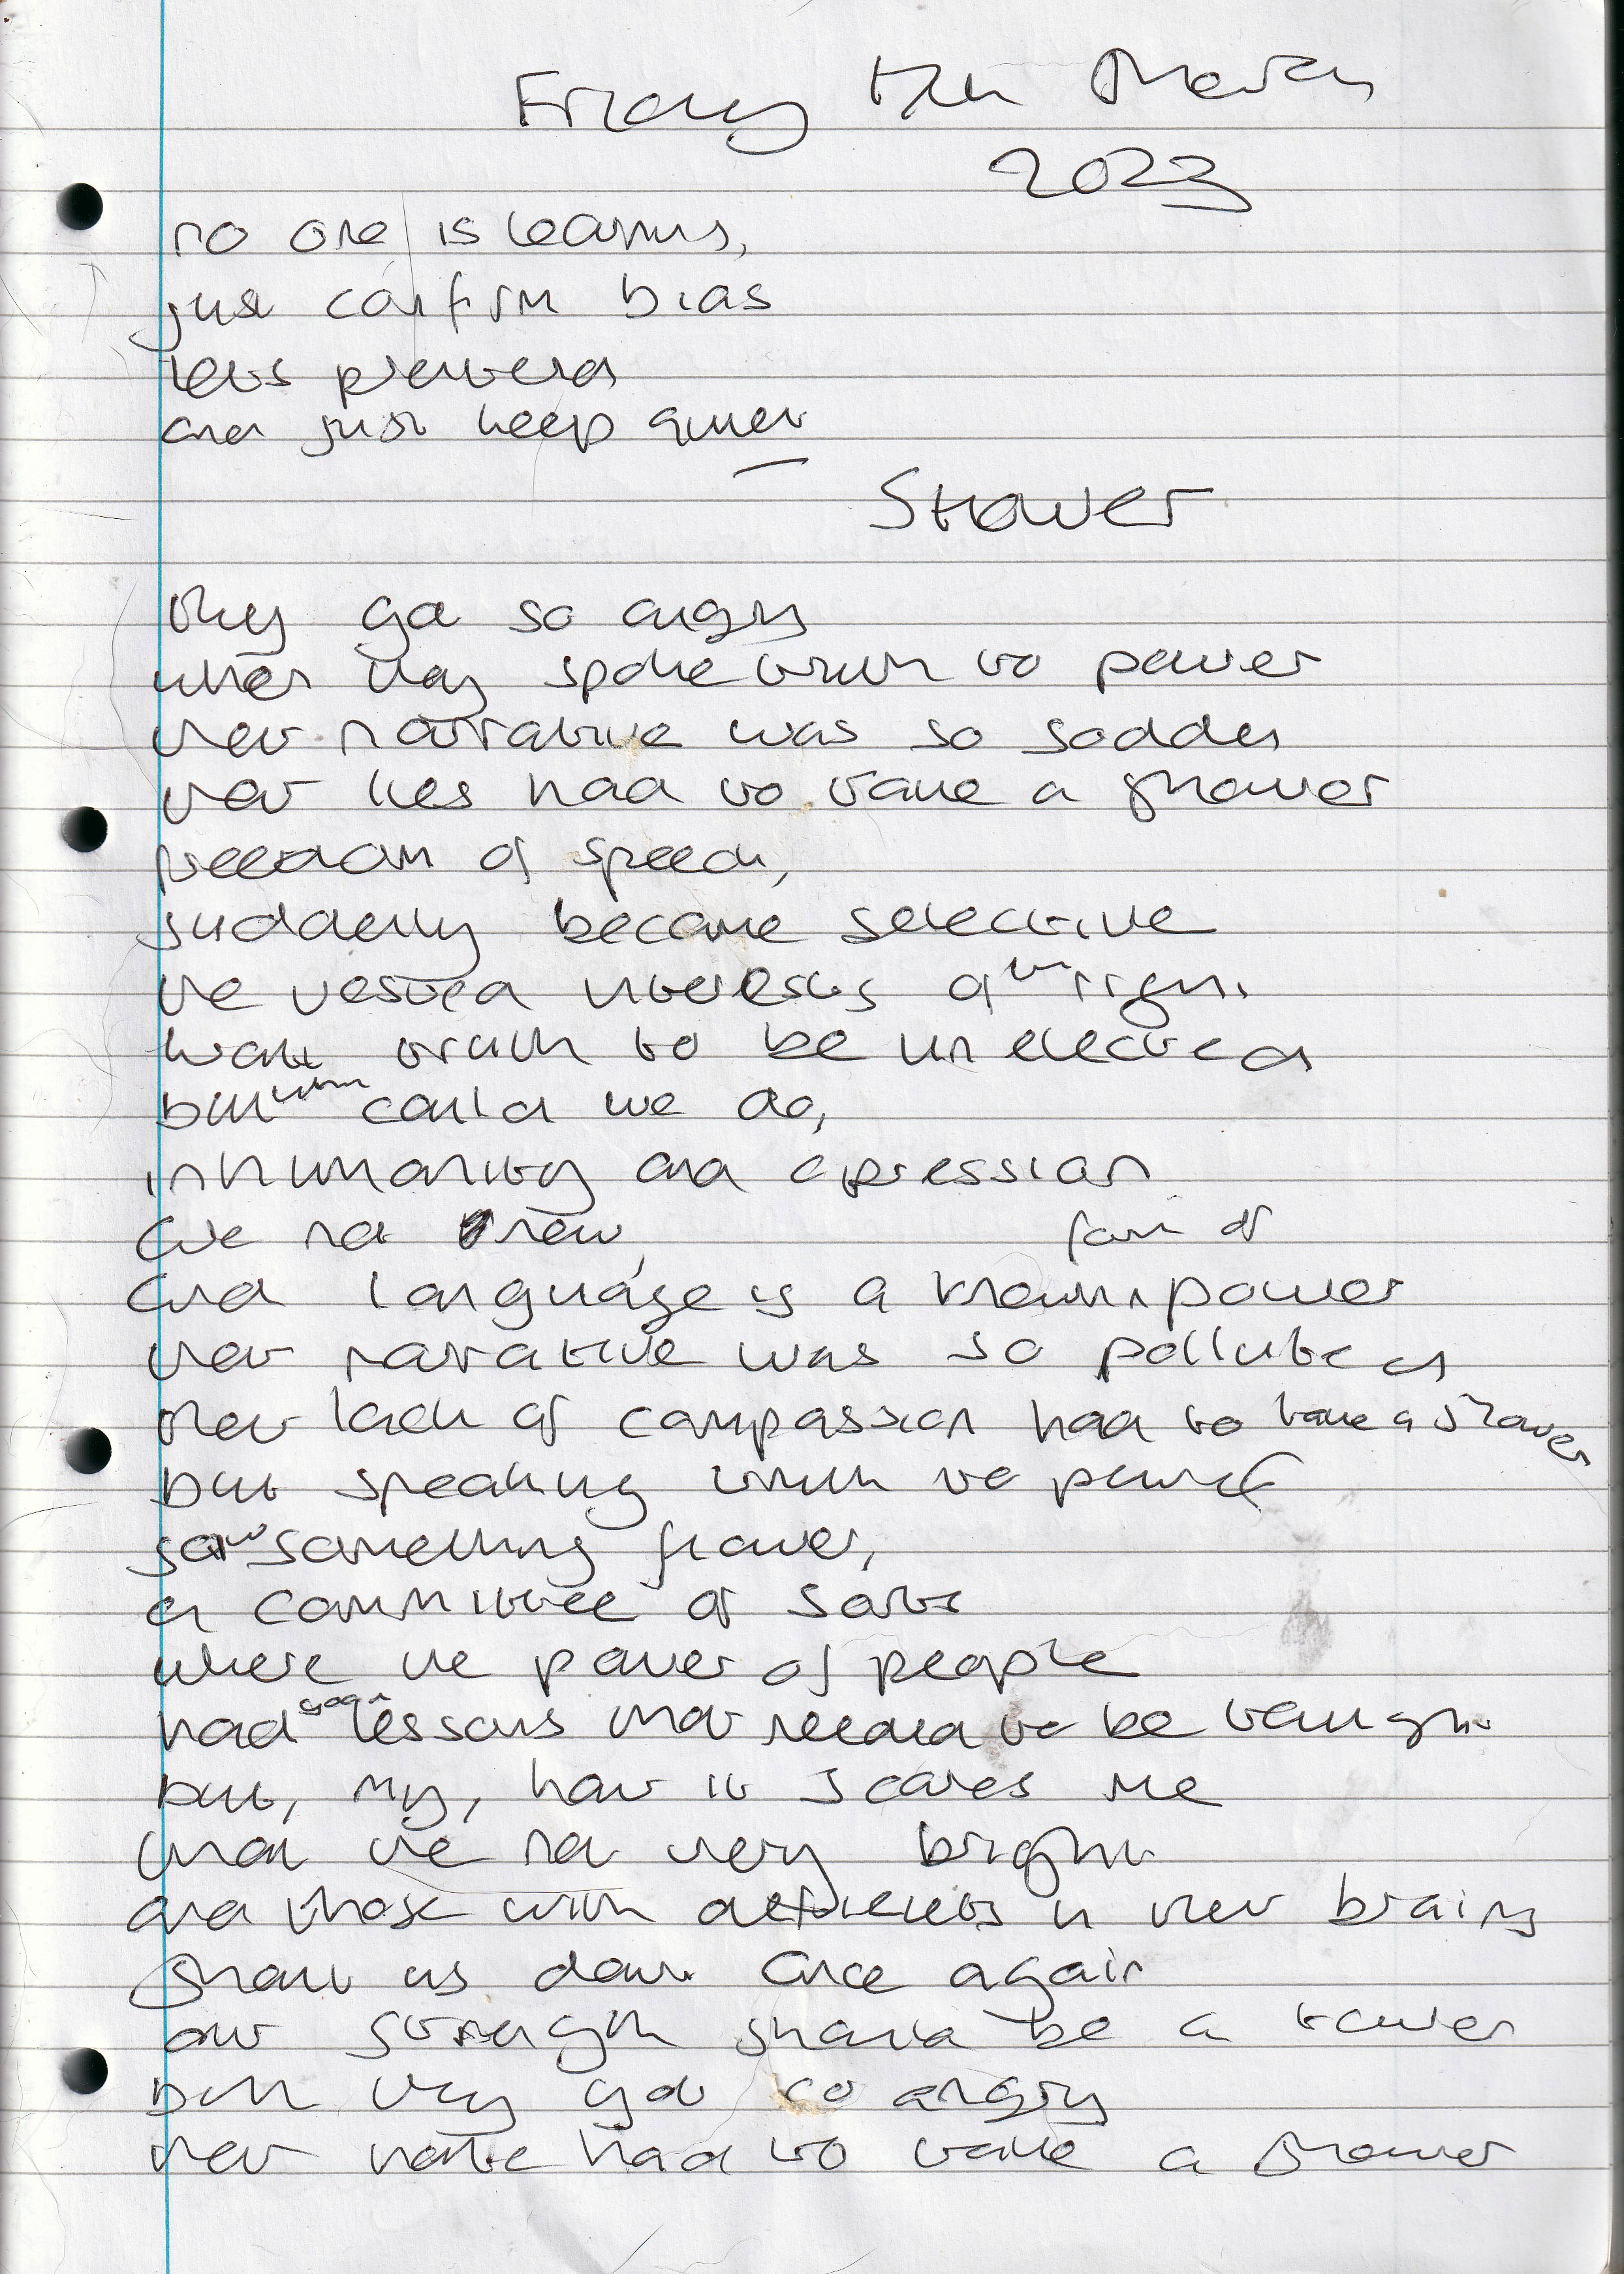 Friday March
2023
no one is learning,
just confirm bias
lets pretend
and just keep quiet
Shower
they got so angry
when they spoke truth to power
their narrative was so sodden
their lies had to take a shower
freedom of speech,
suddenly became selective
the vested interests of the right
want truth to be unelected
but what could we do,
inhumanity and opression
are not new,
and language is a known form of power
their narative was so polluted
their lack of compassion had to take a shower
but speaking truth to power
saw something flower,
a committee of sorts
where the power of people
had good lessons that needed to be taught
but, my, how it scares me
that the not very bright
and those with deficits in their brains
shout us down once again
our strength should be a tower
but they got so angry
their hate had to take a shower